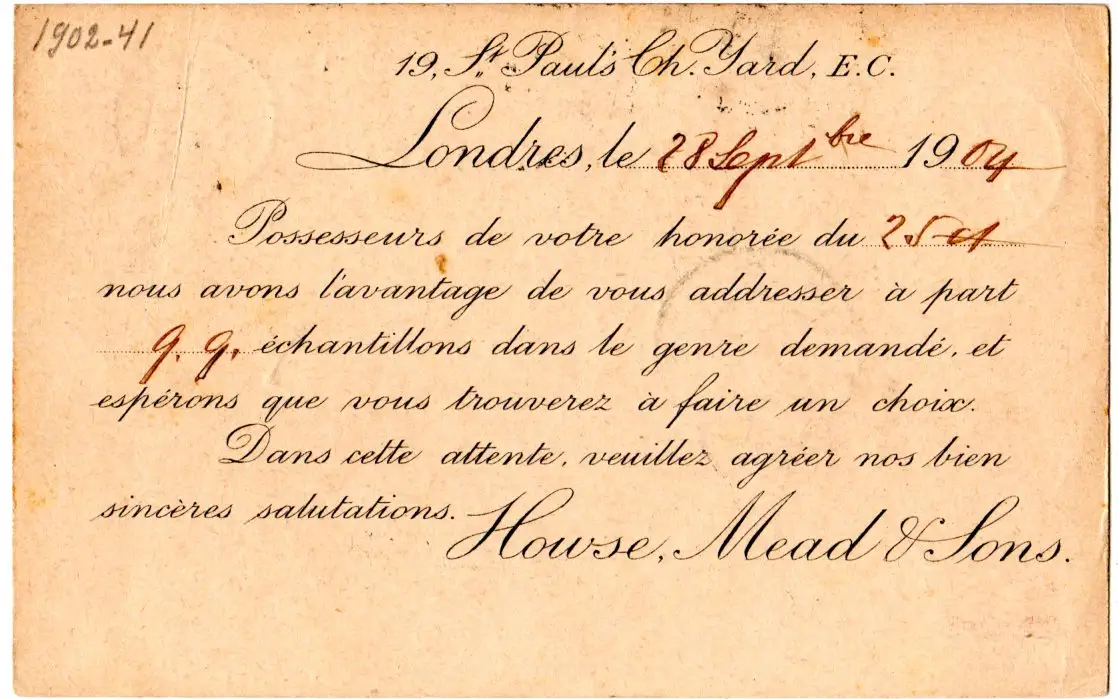 1902-41
19, St. Paul's Ch. Yard, E.C.
Londres, le 28 Septbre 1904
Possesseurs de votre honorée du 25 ct
nous avons l'avantage de vous addresser à part
q. q. échantillons dans le genre demandé, et
espérons que vous trouverez à faire un choix.
Dans cette attente, veuillez agréer nos bien
sincères salutations.
Howse, Mead & Sons.